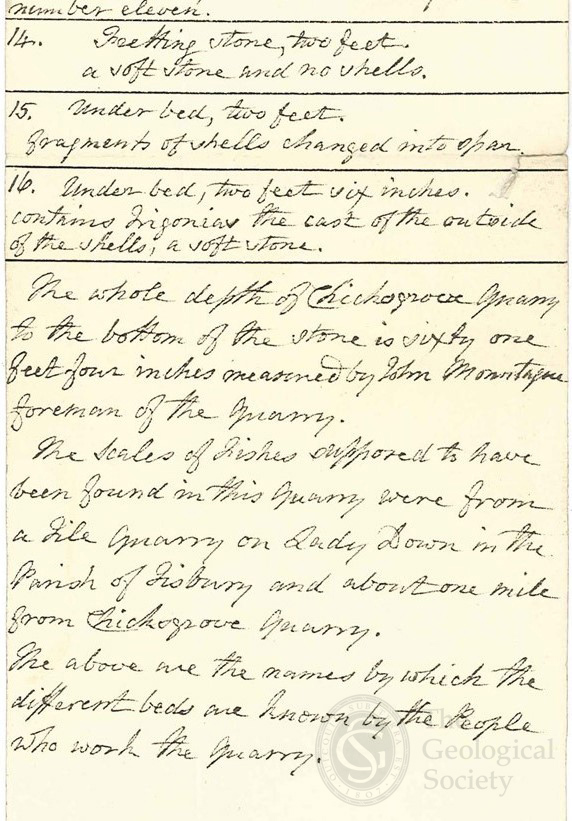 number eleven.
14. Fretting stone, two feet.
a soft stone and no shells.
15. Under bed, two feet.
fragments of shells changed into spar.
16. Under bed, two feet six inches.
contains Trigonias the cast of the outside
of the shells, a soft stone.
The whole depth of Chicksgrove Quarry
to the bottom of the stone is sixty one
feet four inches measured by John Montague
foreman of the Quarry.
The Scales of Fishes supposed to have
been found in this Quarry were from
a Tile Quarry on Lady Down in the
Parish of Tisbury and about one mile
from Chicksgrove Quarry.
The above are the names by which the
different beds are known by the People
who work the Quarry.
The
Geological
Society